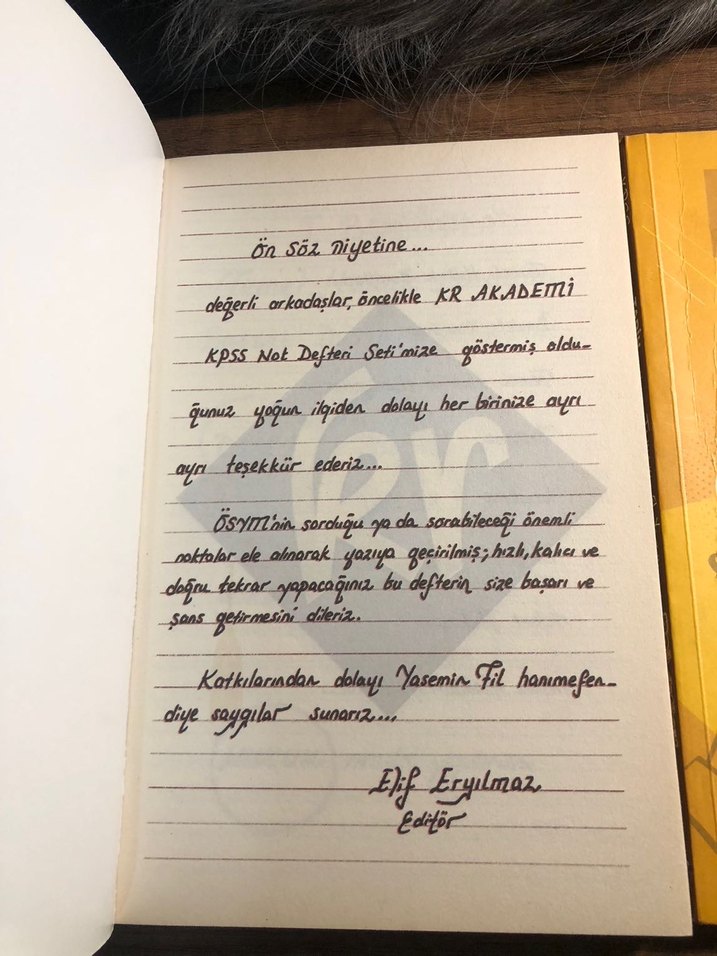 Ön Söz Niyetine...
değerli arkadaşlar, öncelikle KR AKADEMİ
KPSS Not Defteri Seti'mize göstermiş oldu-
ğunuz yoğun ilgiden dolayı her birinize ayrı
ayrı teşekkür ederiz...
ÖSYM'nin sorduğu ya da sorabileceği önemli
noktalar ele alınarak yazıya geçirilmiş; hızlı, kalıcı ve
doğru tekrar yapacağınız bu defterin size başarı ve
şans getirmesini dileriz.
Katkılarından dolayı Yasemin Fil hanımefen-
diye saygılar sunarız...
Elif Eryılmaz
Editör
kr